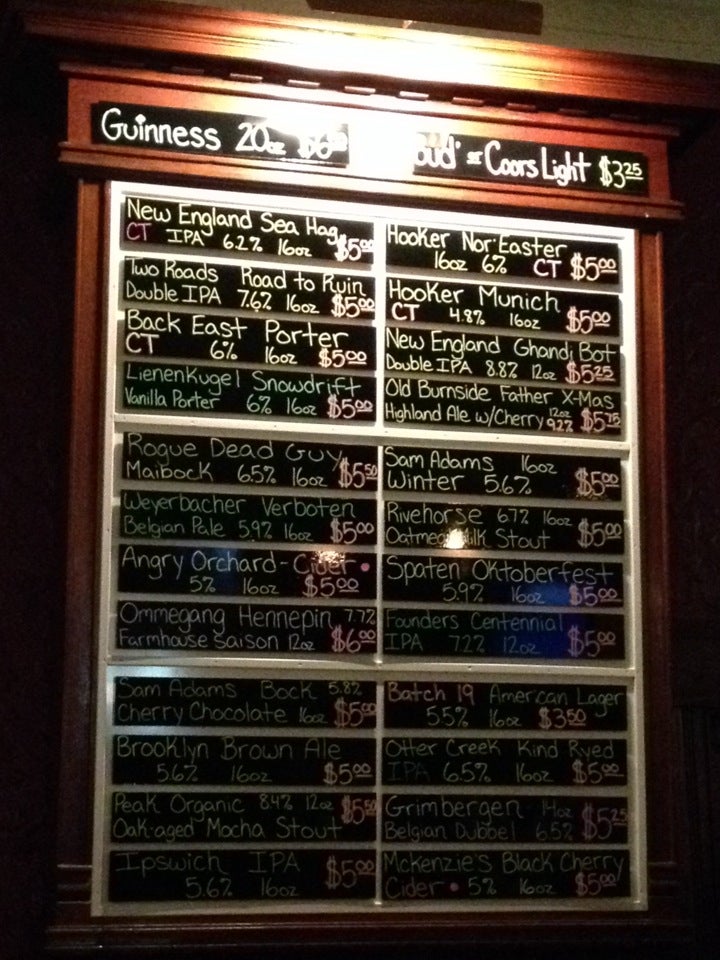 Guinness 20oz
Bud' or Coors Light $3.25
New England Sea Hag
CT IPA 6.2% 16oz $5.00
Two Roads Road to Ruin
Double IPA 7.6% 16oz $5.00
Back East Porter
CT 6% 16oz $5.00
Lienenkugel Snowdrift
Vanilla Porter 6% 16oz $5.00
Rogue Dead Guy
Maibock 6.5% 16oz $5.50
Weyerbacher Verboten
Belgian Pale 5.9% 16oz $5.00
Angry Orchard - Cider •
5% 16oz $5.00
Ommegang Hennepin 7.7%
Farmhouse Saison 12oz $6.00
Sam Adams Bock 5.8%
Cherry Chocolate 16oz $5.00
Brooklyn Brown Ale
5.6% 16oz $5.00
Peak Organic 8.4% 12oz $5.50
Oak-aged Mocha Stout
Ipswich IPA
5.6% 16oz $5.00
Hooker Nor'Easter
16oz 6% CT $5.00
Hooker Munich
CT 4.8% 16oz $5.00
New England Ghandi Bot
Double IPA 8.8% 12oz $5.25
Old Burnside Father X-Mas
Highland Ale w/Cherry 12oz 9.2% $5.75
Sam Adams 16oz
Winter 5.6% $5.00
Rivehorse 6.7% 16oz
Oatmeal Milk Stout $5.00
Spaten Oktoberfest
5.9% 16oz $5.00
Founders Centennial
IPA 7.2% 12oz $5.00
Batch 19 American Lager
5.5% 16oz $3.50
Otter Creek Kind Ryed
IPA 6.5% 16oz $5.00
Grimbergen 14oz
Belgian Dubbel 6.5% $5.25
McKenzie's Black Cherry
Cider • 5% 16oz $5.00